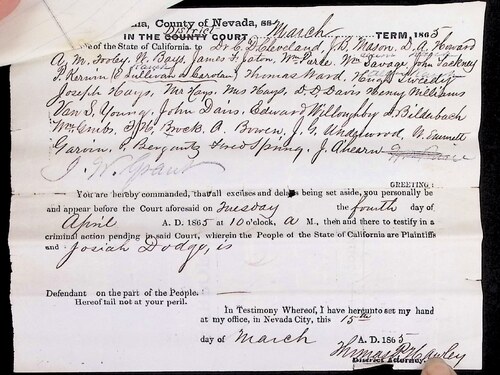 nia, County of Nevada, ss
District
IN THE COUNTY COURT, March TERM, 1865
e of the State of California. to Dr C. D. Cleveland, J. B. Mason, D. A. Howard
A. M. Fooley, W. Bays, James F. Eaton, Wm Savage, John
P. Kerwin, P Sullivan, Thomas Ward, Hugh
Joseph Hays, Mr Hays, Mrs Hays, D. D. Davis Henry Williams
Van S. Young, John Davis, Edward Willoughby, Bilderbach
Wm Brock, A. Bowen, J. G. Underwood,
Garvin, P. Fred Spring, J. Ahearn
J. W. Grant
GREETING:
You are hereby commanded, that all excuses and delays being set aside, you personally be
and appear before the Court aforesaid on Tuesday the fourth day of
April A. D. 1865 at 10 o'clock, A M., then and there to testify in a
criminal action pending in said Court, wherein the People of the State of California are Plaintiffs
and Josiah Dodge, is
Defendant on the part of the People.
Hereof fail not at your peril.
In Testimony Whereof, I have hereunto set my hand
at my office, in Nevada City, this 15th
day of March A. D. 1865
Thomas P. Hawley
District Attorney.